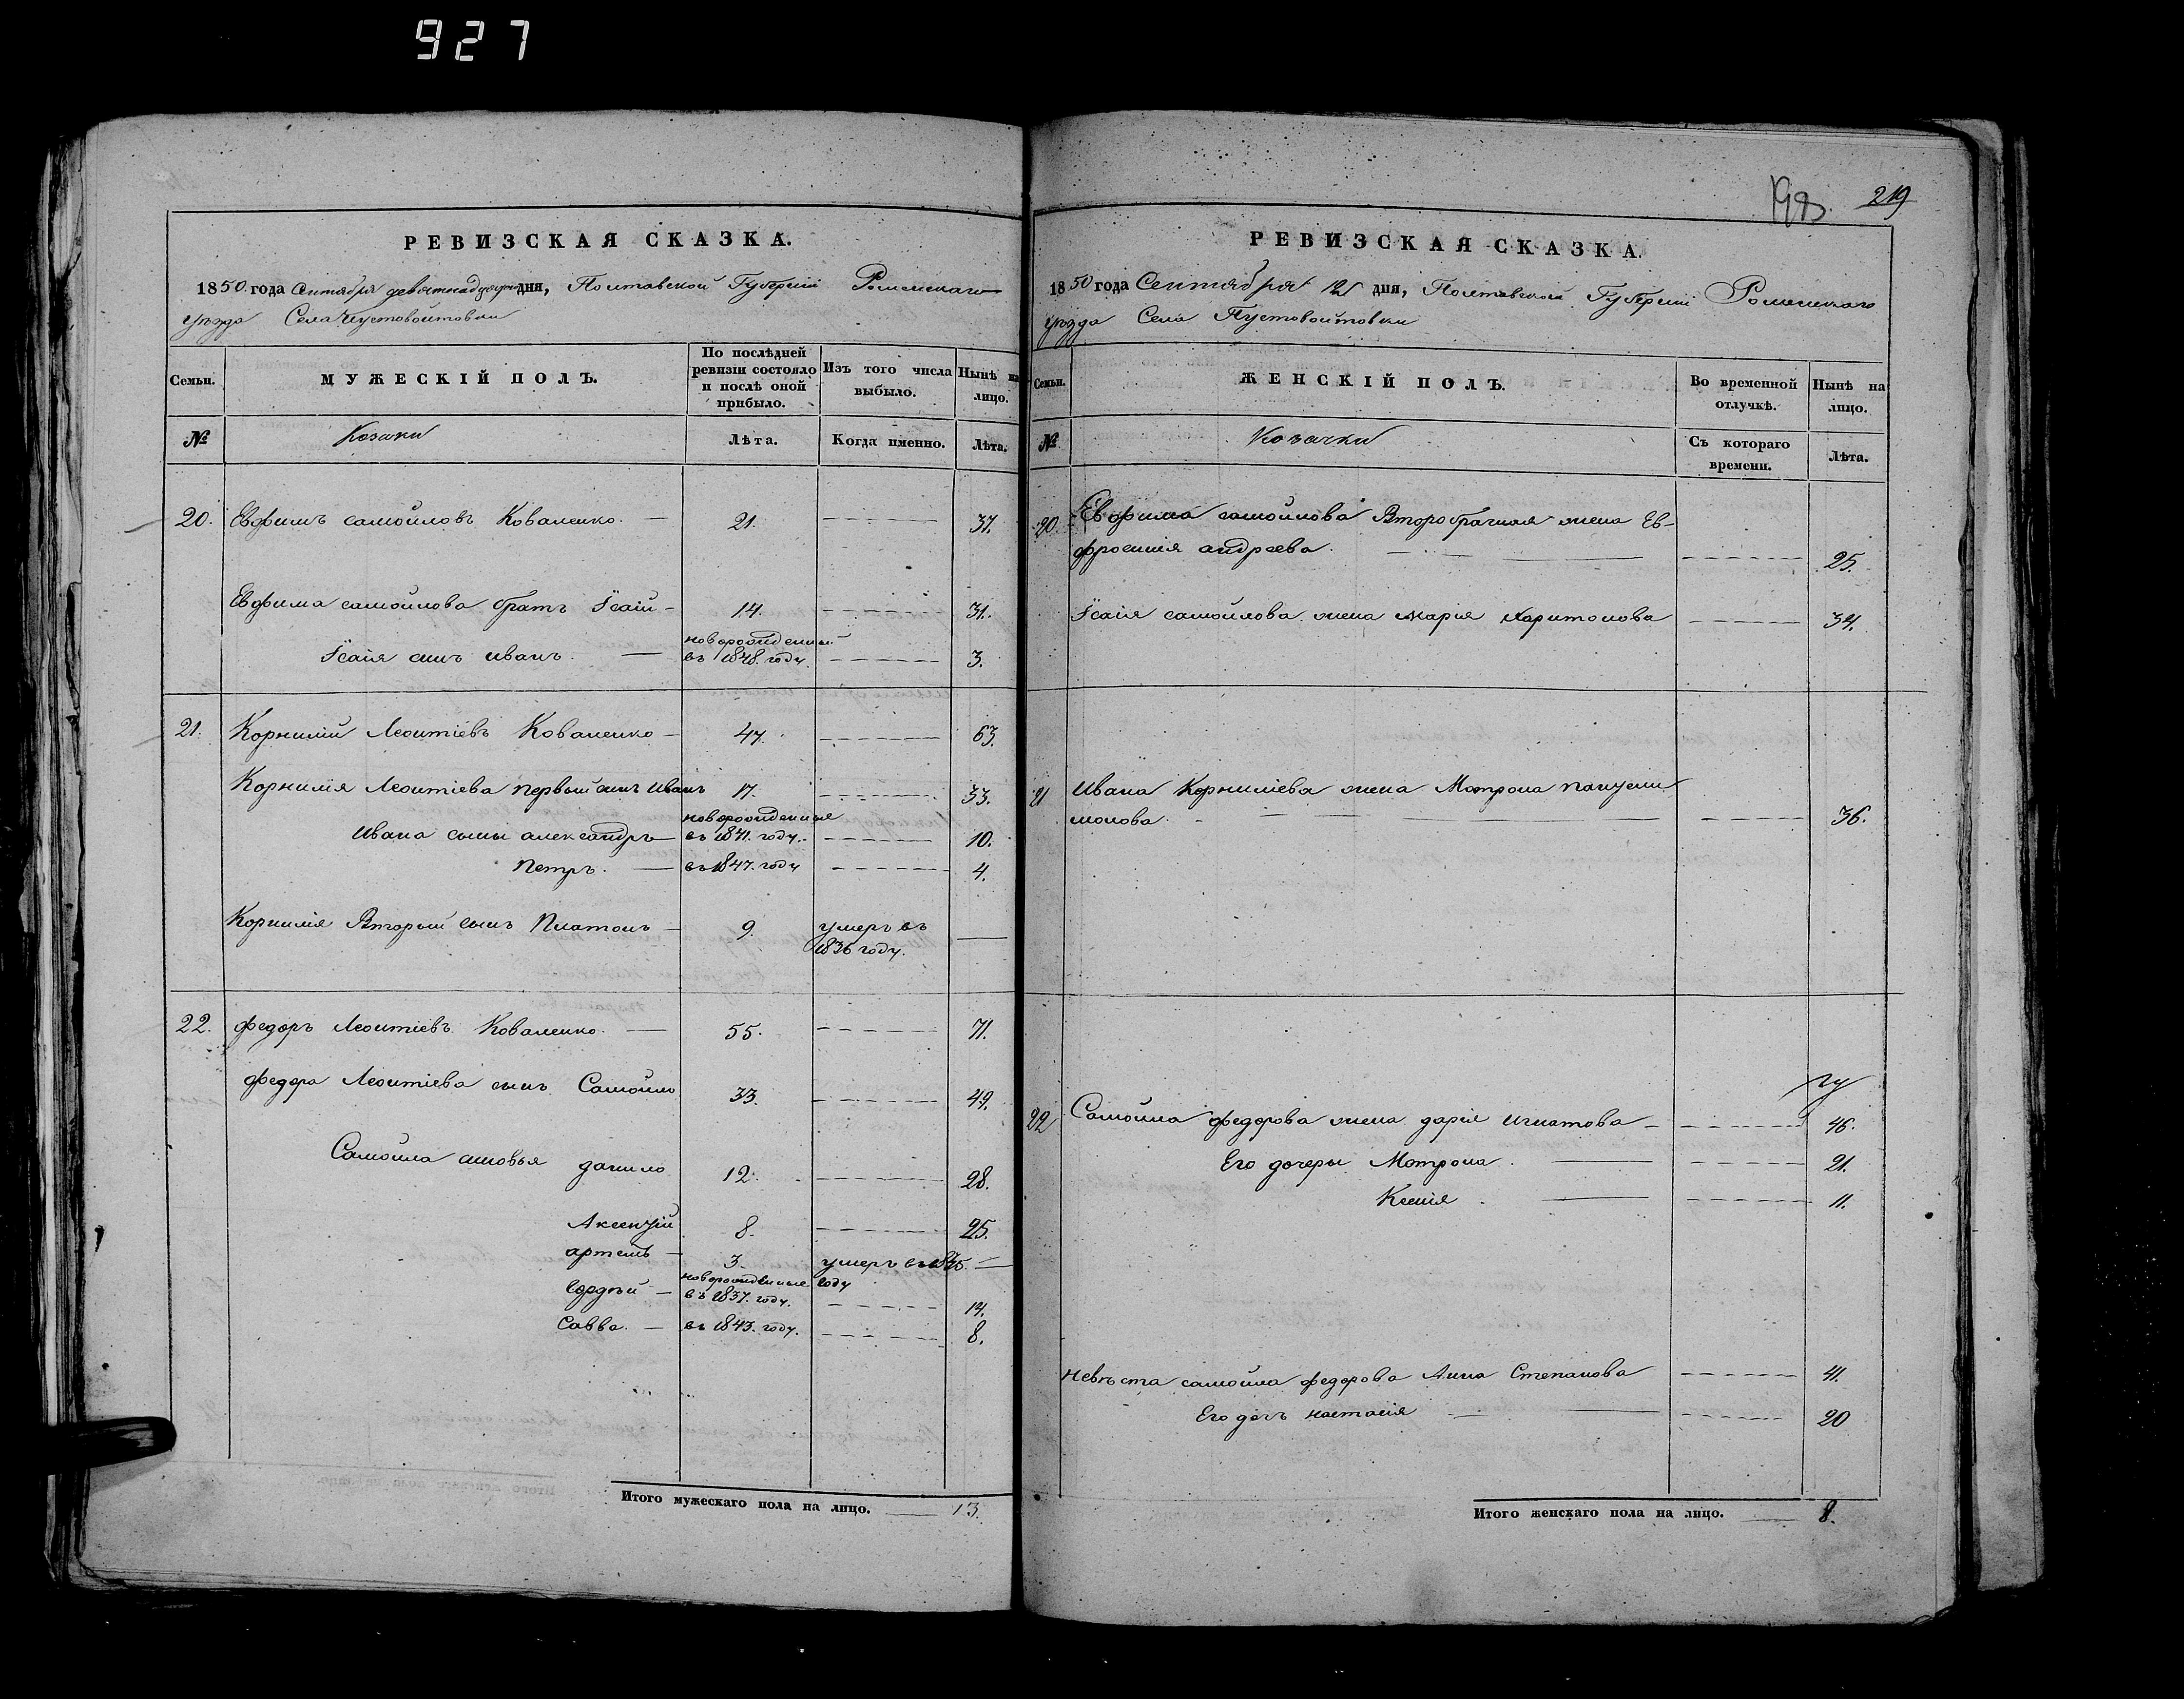 927
РЕВИЗСКАЯ СКАЗКА.
1850. года Сентября девятнадцатого дня, Полтавской Губернии Роменскаго
уезда Села Пустовойтовки
Семьи. МУЖЕСКІЙ ПОЛЪ. По послѣдней ревизіи состояло и послѣ оной прибыло. Изъ того числа выбыло. Нынѣ на лицо.
№ Козаки Лѣта. Когда именно. Лѣта.
20. Евфимъ самойловъ Коваленко. 21. 37.
Евфима самойлова братъ Ісаій 14. 31.
Ісаія сынъ иванъ. новорожденный въ 1848. году. 3.
21. Корнилій Леонтіевъ Коваленко 47. 63.
Корнилія Леонтіева первый сынъ иванъ 17. 33.
Ивана сыны александръ новорожденные въ 1841. году. 10.
Петръ. въ 1847. году 4.
Корнилія Вторый сынъ Платонъ 9. умеръ въ 1836 году.
22. федоръ Леонтіевъ Коваленко. 55. 71.
федора Леонтіева сынъ Самойло 33. 49.
Самойла сыновья данило 12. 28.
Аксентій 8. 25.
артемъ 3. умеръ въ 1835. году
гордѣй новорожденные въ 1837. году. 14.
Савва. въ 1843. году. 8.
Итого мужескаго пола на лицо. 13.
198. 219
РЕВИЗСКАЯ СКАЗКА.
1850 года Сентября дня, Полтавской Губерніи Роменскаго
уезда Села Пустовойтовки
Семьи. ЖЕНСКІЙ ПОЛЪ. Во временной отлучкѣ. Нынѣ на лицо.
№ Козачки Съ котораго времени. Лѣта.
20. Евфима самойлова Второбрачная жена Ев-
фросинія андреева. 25.
Ісаія самойлова жена марія харитонова 34.
21 Ивана Корниліева жена Мотрона пантели
монова. 36.
22 Самойла федорова жена дарія игнатова 46.
Его дочеры Мотрона. 21.
Ксенія. 11.
Невѣста самойла федорова Анна Степанова 41.
Его дочь настасія 20
Итого женскаго пола на лицо. 8.